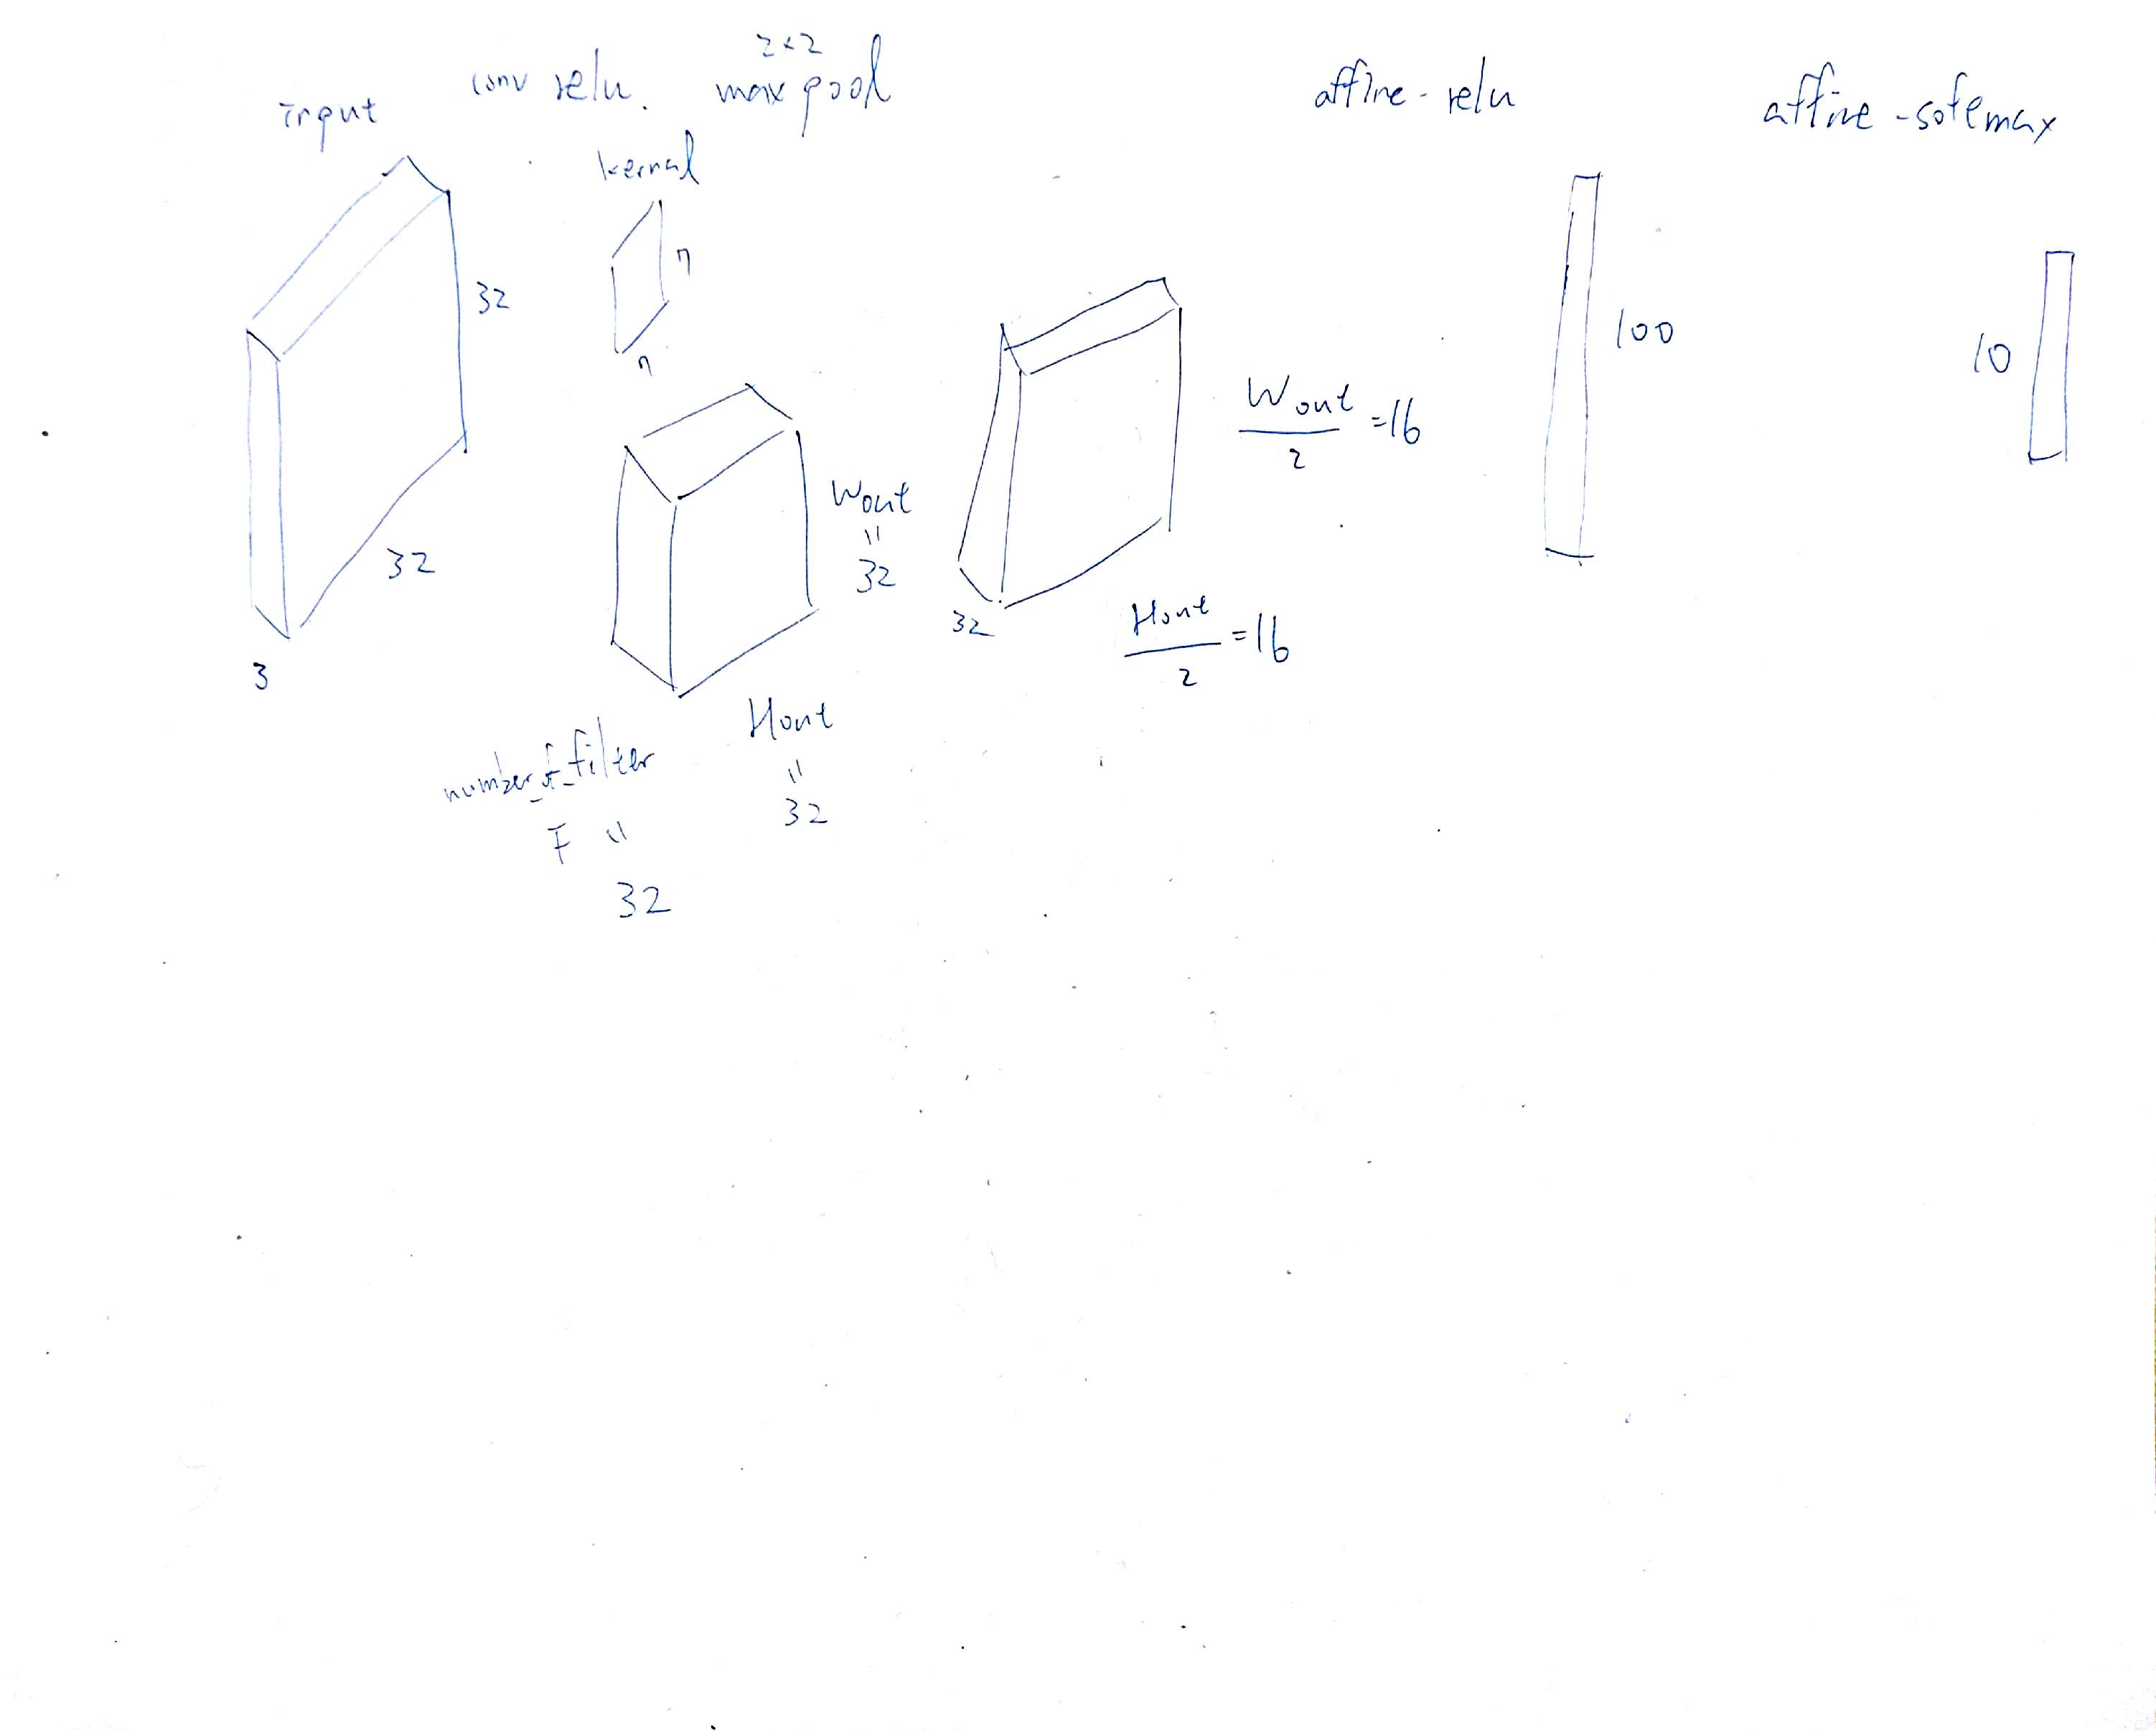 input
conv relu.
2×2
max pool
affine - relu
affine - softmax
kernal
n
n
32
32
3
Wout
=
32
Hout
=
32
number_of_filter
F =
32
Wout
2
=16
Hout
2
=16
32
100
10